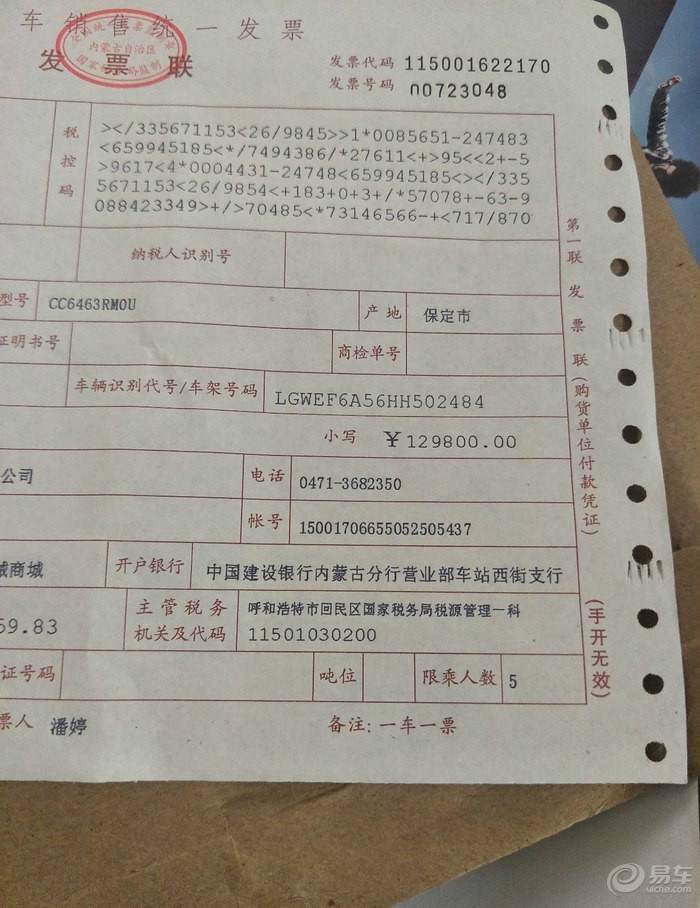 车销售统一发票
内蒙古自治区
发票联
发票代码 115001622170
发票号码 00723048
税控码
></335671153<26/9845>>1*0085651-247483
<659945185<*/7494386/*27611<+>95<<2+-5
>9617<4*0004431-24748<659945185<></335
5671153<26/9854<+183+0+3+/*57078+-63-9
088423349>+/>70485<*73146566-+<717/870
纳税人识别号
型号 CC6463RM0U 产地 保定市
证明书号 商检单号
车辆识别代号/车架号码 LGWEF6A56HH502484
小写 ￥129800.00
公司 电话 0471-3682350
帐号 15001706655052505437
械商城 开户银行 中国建设银行内蒙古分行营业部车站西街支行
59.83 主管税务机关及代码 呼和浩特市回民区国家税务局税源管理一科
11501030200
证号码 吨位 限乘人数 5
票人 潘婷 备注:一车一票
第一联 发票联(购货单位付款凭证)
(手开无效)
易车
yiche.com